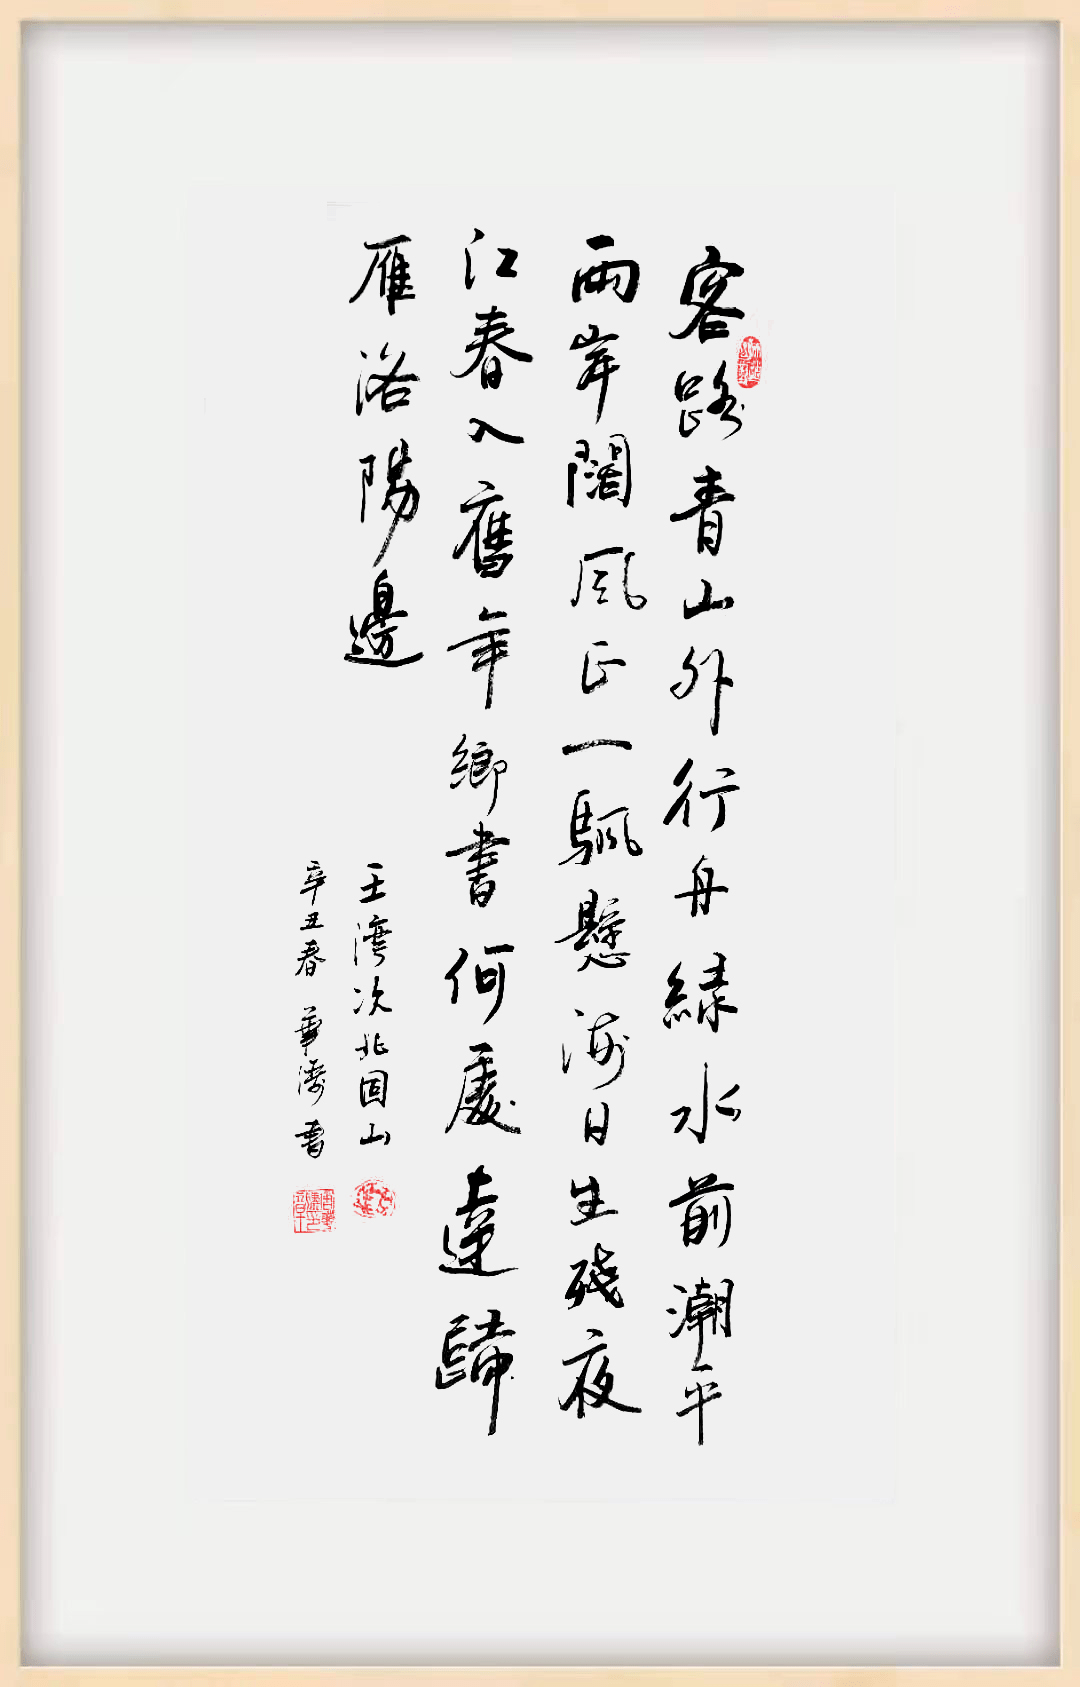 客路青山外行舟綠水前潮平
兩岸闊風正一颿懸海日生殘夜
江春入舊年鄉書何處達歸
雁洛陽邊
王灣次北固山
辛丑春 華書